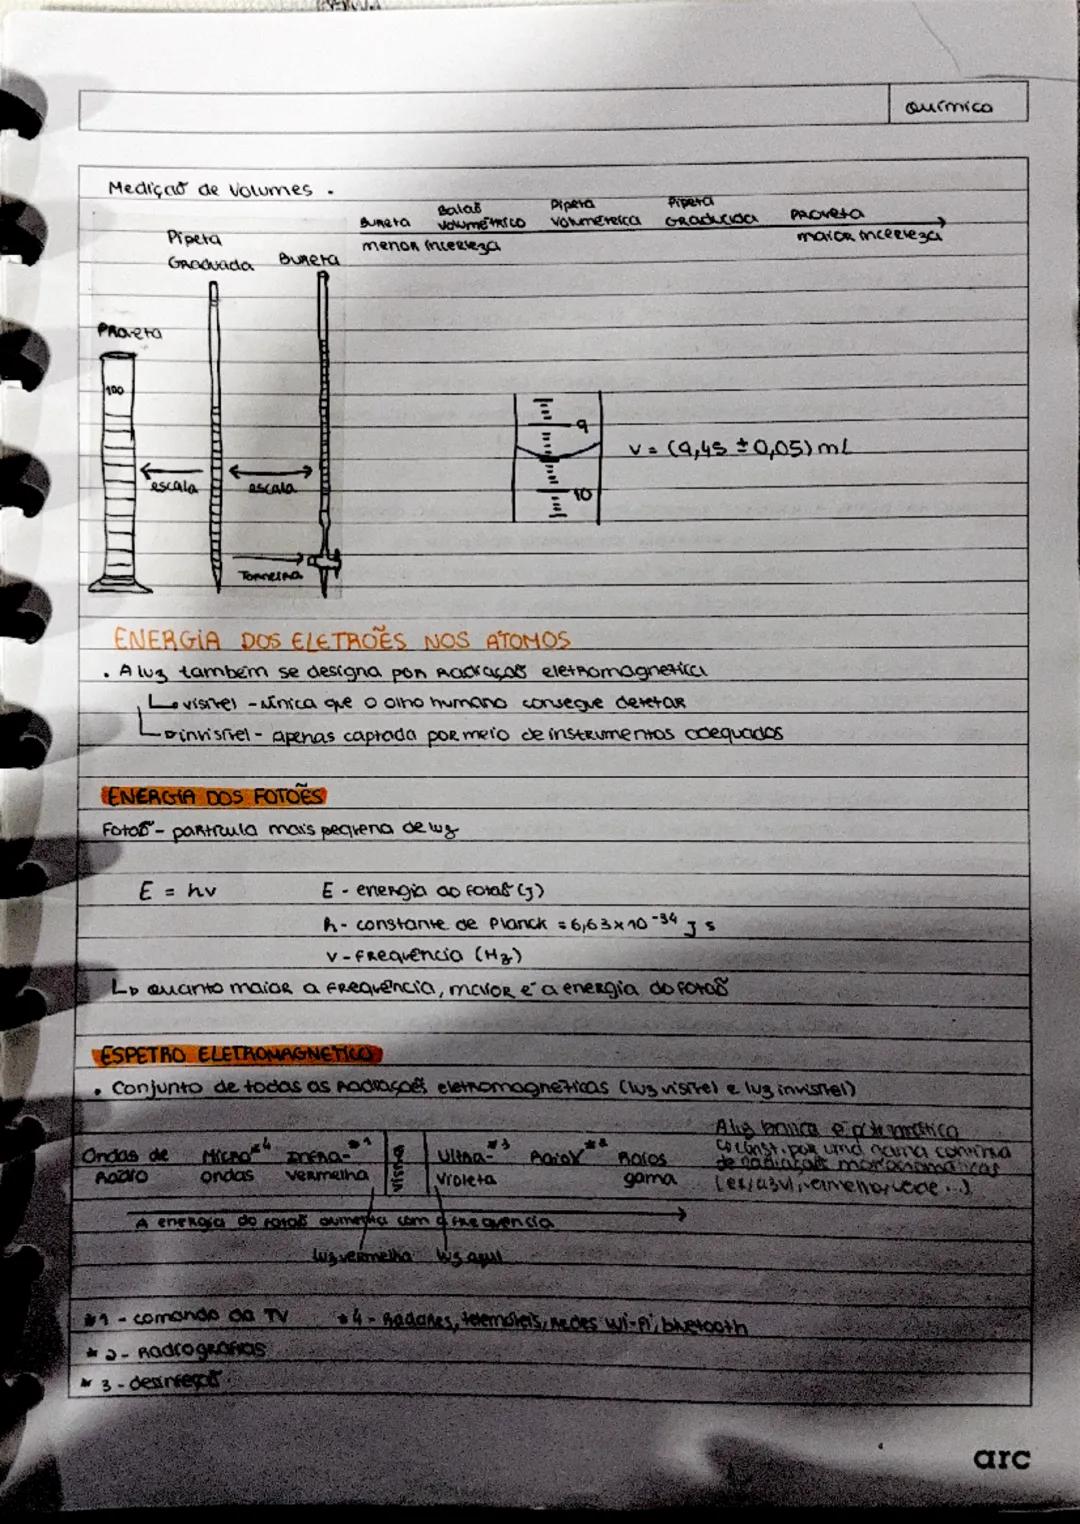 Química
Medição de Volumes.
Bureta Balão Volumétrico Pipeta Volumétrica Pipeta Graduada Proveta
menor incerteza maior incerteza
Pipeta Graduada
Bureta
Proveta
100
escala
escala
Torneira
9
10
V = (9,45 ± 0,05) mL
ENERGIA DOS ELETRÕES NOS ÁTOMOS
. A luz também se designa por Radiação eletromagnética
↳ visível - única que o olho humano consegue detetar
↳ invisível - apenas captada por meio de instrumentos adequados
ENERGIA DOS FOTÕES
Fotão - partícula mais pequena de luz
E = hv E - energia do fotão (J)
h - constante de Planck = 6,63 x 10⁻³⁴ J s
v - frequência (Hz)
↳ Quanto maior a frequência, maior é a energia do fotão
ESPETRO ELETROMAGNÉTICO
. Conjunto de todas as radiações eletromagnéticas (luz visível e luz invisível)
A luz branca é
↳ const. por uma gama contínua
de radiações monocromáticas
(ex/azul, vermelho, verde ...)
Ondas de Rádio Micro*4 ondas Infra-*1 vermelha Visível Ultra-*3 Violeta Raios X*2 Raios gama
A energia do fotão aumenta com a frequência
luz vermelha luz azul
*1 - comando da TV *4 - Radares, telemóveis, redes Wi-Fi, bluetooth
*2 - Radiografias
*3 - desinfeção
arc